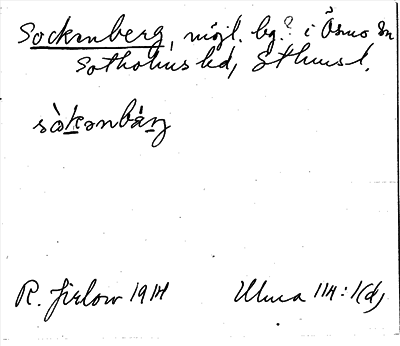 Sockenberg, möjl. bg? i Ösmo sn
Sotholms hd, Sthms l.
sòkənbárʒ
R. Jirlow 1914
Ulma 114:1(d)